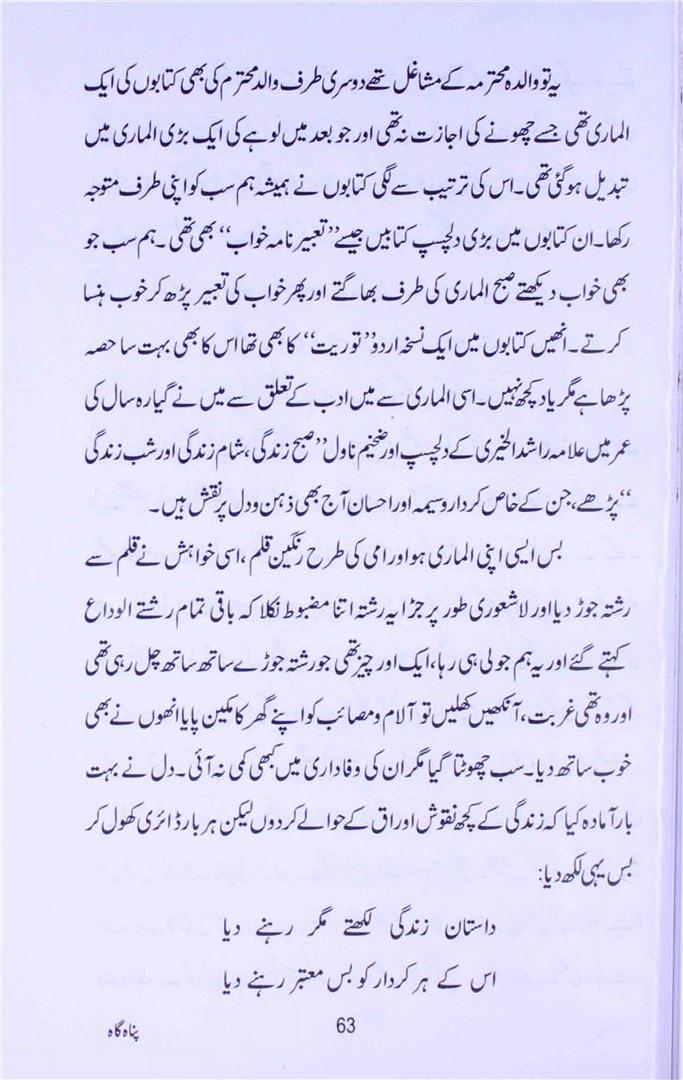 یہ تو والدہ محترمہ کے مشاغل تھے دوسری طرف والد محترم کی بھی کتابوں کی ایک
الماری تھی جسے چھونے کی اجازت نہ تھی اور جو بعد میں لوہے کی ایک بڑی الماری میں
تبدیل ہو گئی تھی۔ اس کی ترتیب سے لگی کتابوں نے ہمیشہ ہم سب کو اپنی طرف متوجہ
رکھا۔ ان کتابوں میں بڑی دلچسپ کتابیں جیسے ’’تعبیر نامہ خواب‘‘ بھی تھی ۔ ہم سب جو
بھی خواب دیکھتے صبح الماری کی طرف بھاگتے اور پھر خواب کی تعبیر پڑھ کر خوب ہنسا
کرتے۔ انھیں کتابوں میں ایک نسخہ اردو ’’توریت‘‘ کا بھی تھا اس کا بھی بہت سا حصہ
پڑھا ہے مگر یاد کچھ نہیں۔ اسی الماری سے میں ادب کے تعلق سے میں نے گیارہ سال کی
عمر میں علامہ راشد الخیری کے دلچسپ اور ضخیم ناول ’’صبح زندگی، شام زندگی اور شب زندگی
‘‘ پڑھے، جن کے خاص کردار وسیمہ اور احسان آج بھی ذہن و دل پر نقش ہیں۔
بس ایسی اپنی الماری ہو اور امی کی طرح رنگین قلم، اسی خواہش نے قلم سے
رشتہ جوڑ دیا اور لاشعوری طور پر جڑا یہ رشتہ اتنا مضبوط نکلا کہ باقی تمام رشتے الوداع
کہتے گئے اور یہ ہم جولی ہی رہا، ایک اور چیز تھی جو رشتہ جوڑے ساتھ ساتھ چل رہی تھی
اور وہ تھی غربت، آنکھیں کھلیں تو آلام و مصائب کو اپنے گھر کا مکین پایا انھوں نے بھی
خوب ساتھ دیا۔ سب چھوٹتا گیا مگر ان کی وفاداری میں کبھی کمی نہ آئی۔ دل نے بہت
بار آمادہ کیا کہ زندگی کے کچھ نقوش اوراق کے حوالے کر دوں لیکن ہر بار ڈائری کھول کر
بس یہی لکھ دیا:
داستان زندگی لکھتے مگر رہنے دیا
اس کے ہر کردار کو بس معتبر رہنے دیا
63
پناہ گاہ